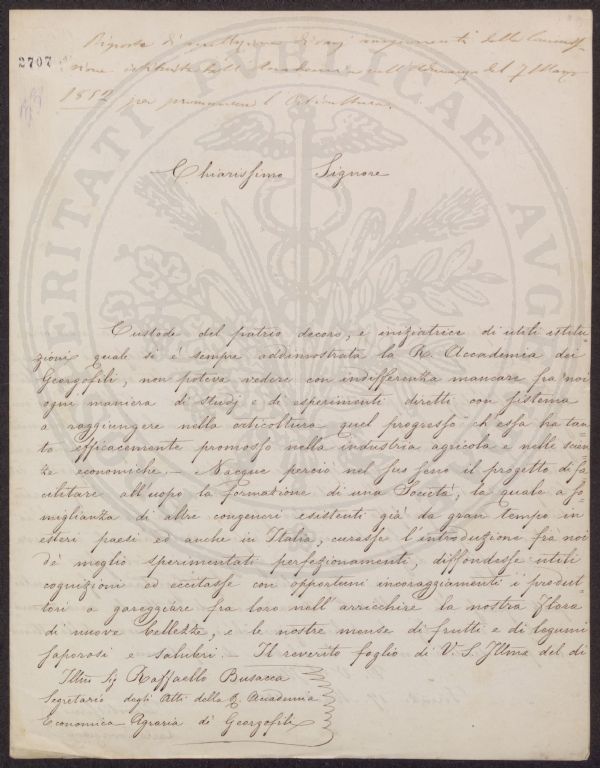 2707
Risposta di accettazione di varj component della Commis-
sione istituita dall'Accademia nell'Adunanza del 7 Marzo
1852 per promuovere l'Orticultura.
PVBLICAE
PROSPERITATI
AVG
Chiarissimo Signore
Custode del patrio decoro, e iniziatrice di utili istitu-
zioni quale si è sempre addimostrata la R. Accademia dei
Georgofili, non poteva vedere con indifferenza mancare fra noi
ogni maniera di studj e di esperimenti diretti con sistema
a raggiungere nella orticoltura quel progresso ch'essa ha tan=
to efficacemente promosso nella industria agricola e nelle scien=
ze economiche.— Nacque perciò nel suo seno il progetto di fa=
cilitare all'uopo la formazione di una Società, la quale a so=
miglianza di altre congeneri esistenti già da gran tempo in
esteri paesi ed anche in Italia, curasse l'introduzione fra noi
dè meglio sperimentati perfezionamenti, diffondesse utili
cognizioni ed eccitasse con opportuni incoraggiamenti i produt=
tori a gareggiare fra loro nell'arricchire la nostra Flora
di nuove bellezze, e le nostre mense di frutti e di legumi
saporosi e salubri.— Il reverito foglio di V. S. Illma del di
Illmo Sig Raffaello Busacca
Segretario degli Atti della R. Accademia
Economico Agraria di Georgofili